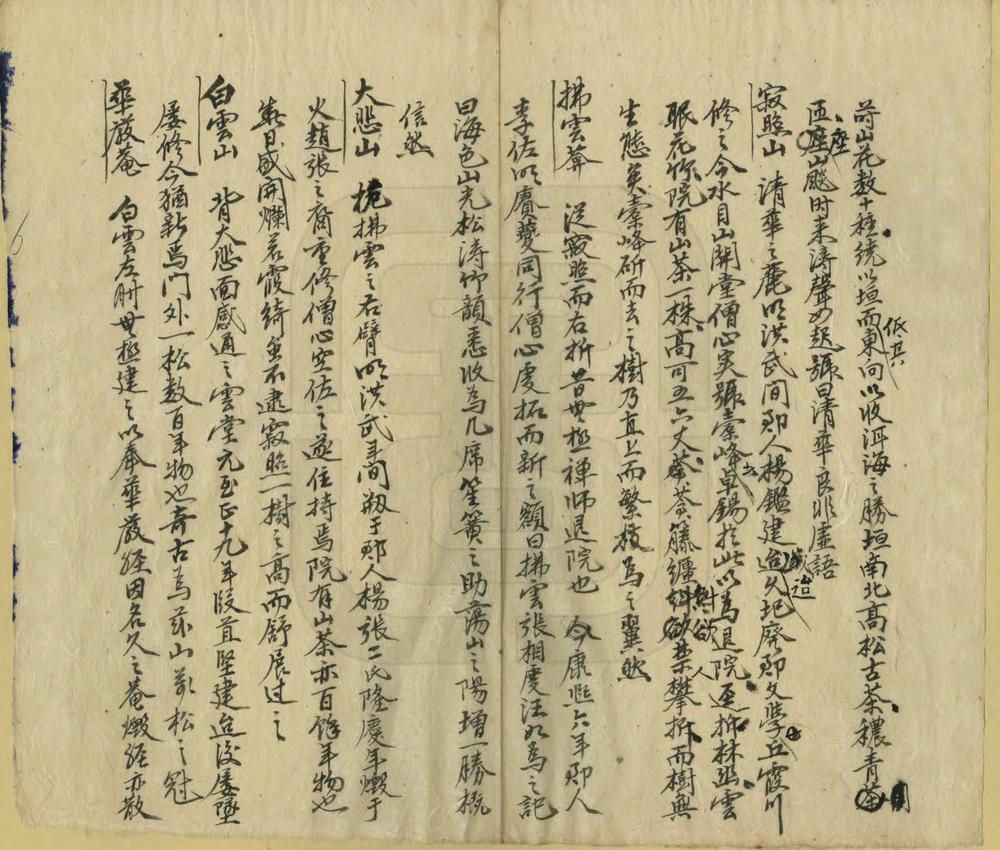 莳山花数十种繞以垣而東向以收洱海之勝垣南北髙松古茶穠青
低其
匝座山飈时来涛聲如起號曰清華良非虚語
座
寂照山 清華之麓明洪武间郡人楊鑑建迨久圯廢郡文學丘霞川
歲迨
修之今水目山開堂僧心実號崇峰卓錫於此以為退院歪拆林巫雲
眠花你院有山茶一株髙可五六丈茶藤纏糾欲攀拆而樹無
糾欲
人
生態矣崇峰斫而去之樹乃直上而繁枝為之翼然
拂雲菴 從寂照而右折昔無極禅師退院也 今康熙六年郡人
李佐明賡夔同行僧心虔拓而新之額曰拂雲張相度汪如為之記
曰海色山光松涛竹韻悉收為几席笙簧之助蕩山之陽增一勝概
信然
大悲山 拂雲之右臂明洪武年间剏于郡人楊張二氏隆慶年燬于
火趙張之裔重修僧心空佐之遂住持焉院有山茶亦百餘年物也
春日盛開爛若霞綺並不逮寂照一樹之髙而舒展过之
白雲山 背大悲面感通之雲堂元至正十九年段苴堅建迨後屡墜
屡修今猶新焉門外一松数百年物也奇古為茲山萬松之冠
華嚴菴 白雲左肘無極建之以奉華嚴經因名久之菴燬經亦散